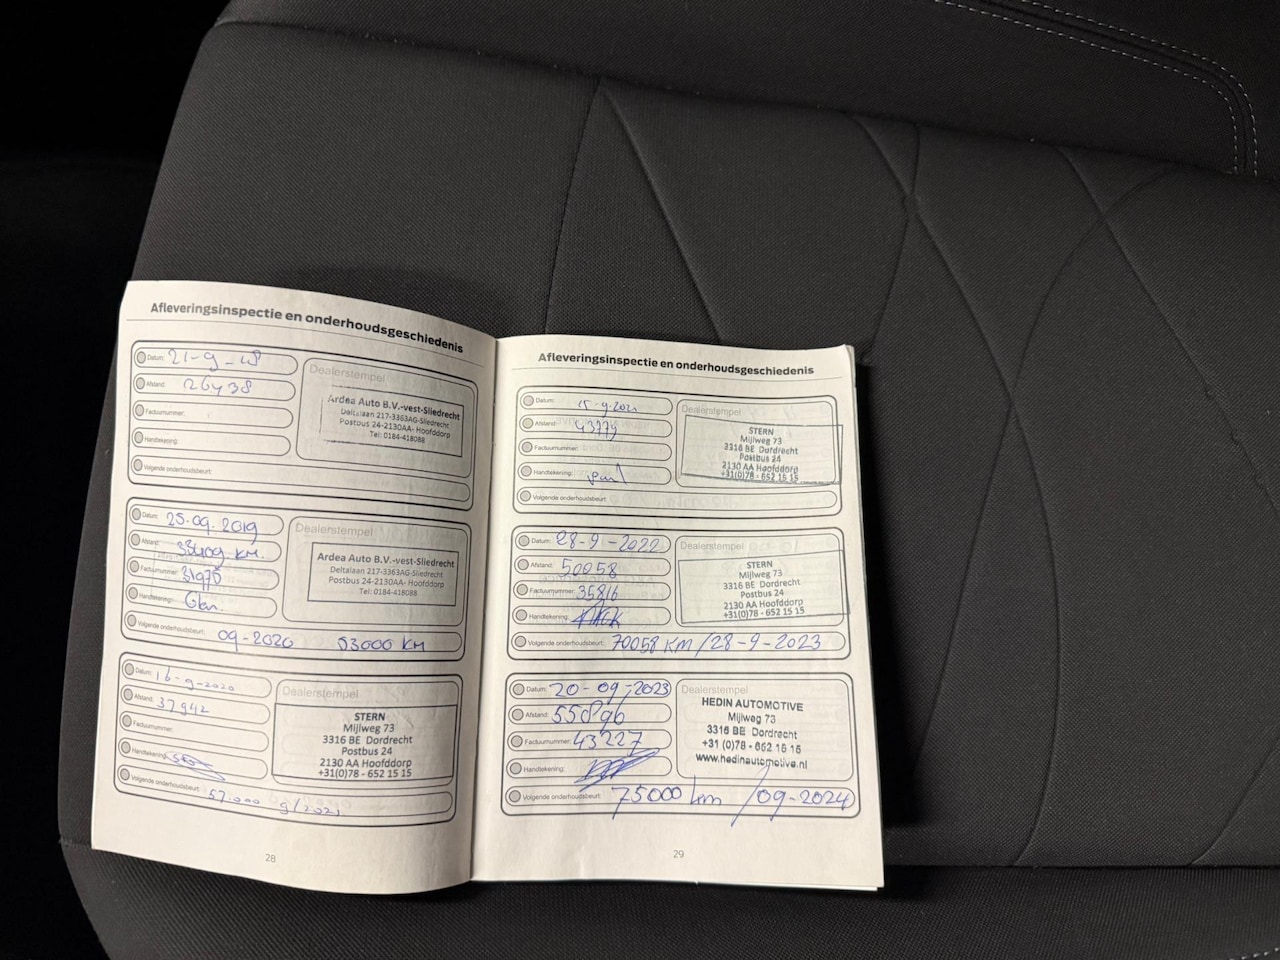 Afleveringsinspectie en onderhoudsgeschiedenis
Datum: 21-9-18
Afstand: 26438
Factuurnummer:
Handtekening:
Volgende onderhoudsbeurt:
Dealerstempel
Ardea Auto B.V.-vest-Sliedrecht
Deltalaan 217-3363AG-Sliedrecht
Postbus 24-2130AA- Hoofddorp
Tel: 0184-418088
Datum: 25.09.2019
Afstand: 33409 KM.
Factuurnummer: 31970
Handtekening:
Volgende onderhoudsbeurt: 09-2020 53000 KM
Dealerstempel
Ardea Auto B.V.-vest-Sliedrecht
Deltalaan 217-3363AG-Sliedrecht
Postbus 24-2130AA- Hoofddorp
Tel: 0184-418088
Datum: 16-9-2020
Afstand: 37942
Factuurnummer:
Handtekening:
Volgende onderhoudsbeurt: 57.000 9/2021
Dealerstempel
STERN
Mijlweg 73
3316 BE Dordrecht
Postbus 24
2130 AA Hoofddorp
+31(0)78 - 652 15 15
28
Afleveringsinspectie en onderhoudsgeschiedenis
Datum: 15-9-2021
Afstand: 43779
Factuurnummer:
Handtekening:
Volgende onderhoudsbeurt:
Dealerstempel
STERN
Mijlweg 73
3316 BE Dordrecht
Postbus 24
2130 AA Hoofddorp
+31(0)78 - 652 15 15
Datum: 28-9-2022
Afstand: 50058
Factuurnummer: 35816
Handtekening:
Volgende onderhoudsbeurt: 70058 KM / 28-9-2023
Dealerstempel
STERN
Mijlweg 73
3316 BE Dordrecht
Postbus 24
2130 AA Hoofddorp
+31(0)78 - 652 15 15
Datum: 20-09-2023
Afstand: 55896
Factuurnummer: 43227
Handtekening:
Volgende onderhoudsbeurt: 75000 km / 09-2024
Dealerstempel
HEDIN AUTOMOTIVE
Mijlweg 73
3316 BE Dordrecht
+31 (0)78 - 652 15 15
www.hedinautomotive.nl
29